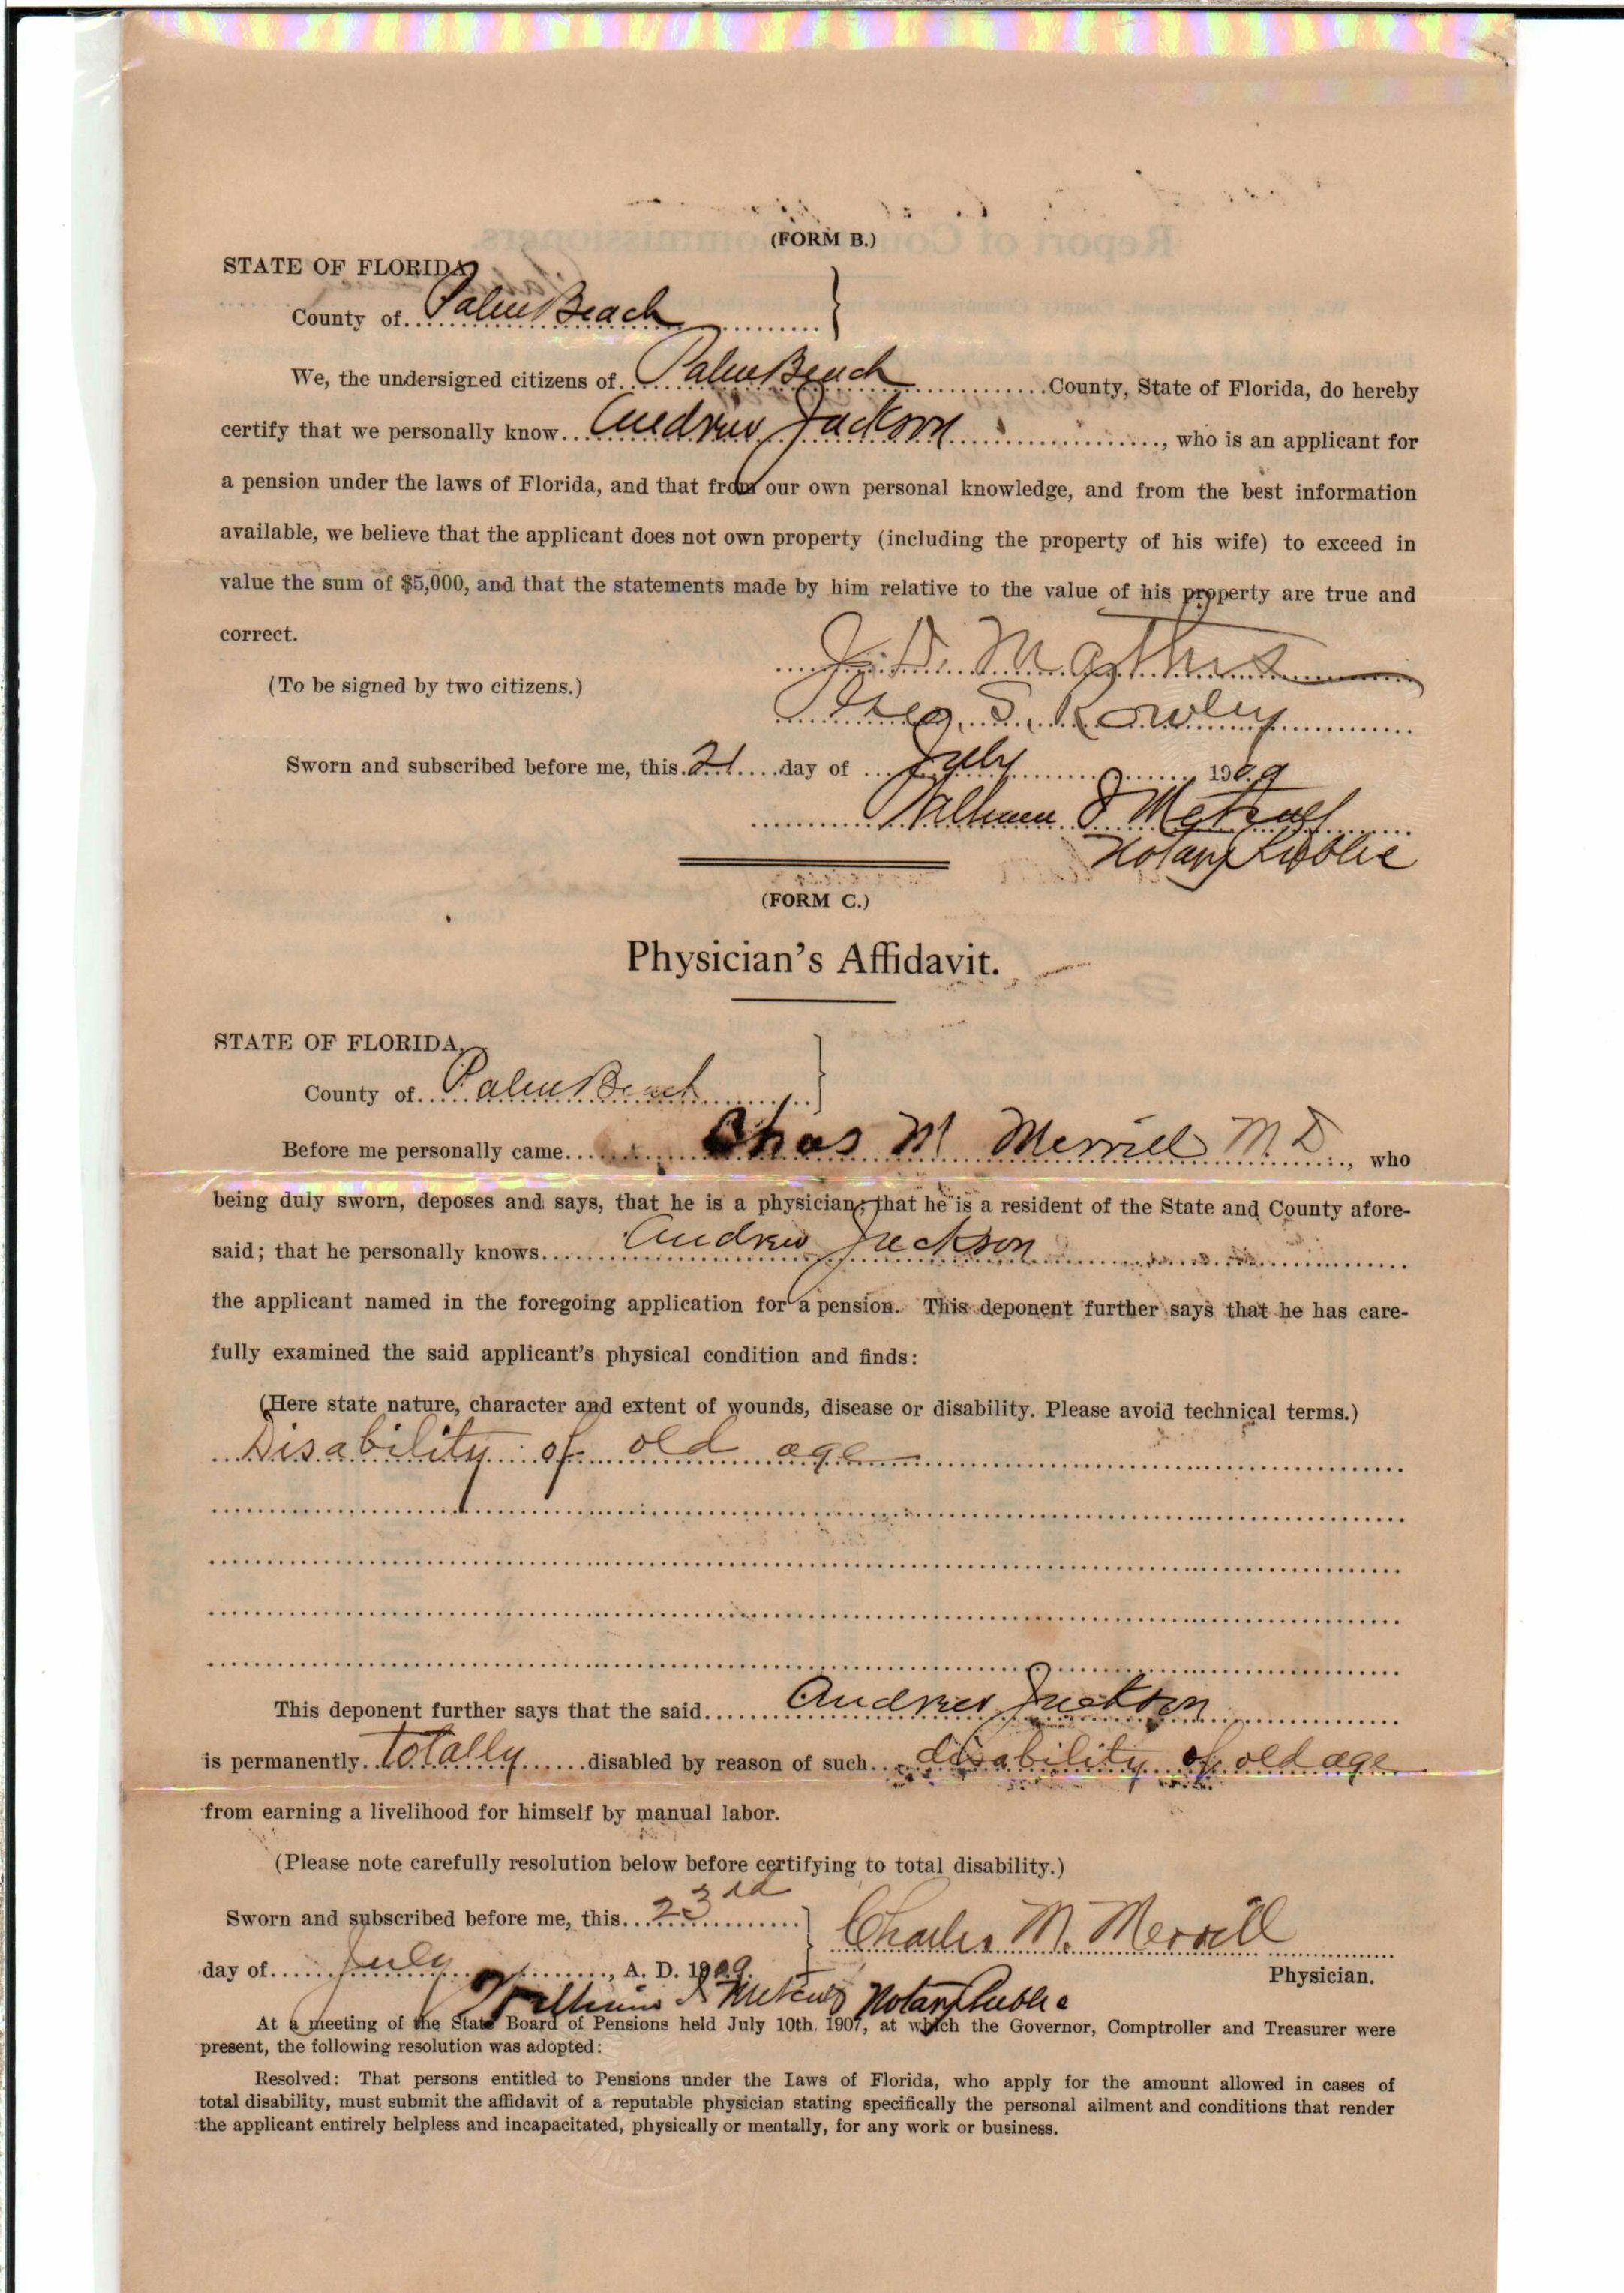 (FORM B.)
STATE OF FLORIDA
County of Palm Beach
We, the undersigned citizens of Palm Beach County, State of Florida, do hereby
certify that we personally know Andrew Jackson, who is an applicant for
a pension under the laws of Florida, and that from our own personal knowledge, and from the best information
available, we believe that the applicant does not own property (including the property of his wife) to exceed in
value the sum of $5,000, and that the statements made by him relative to the value of his property are true and
correct.
J. D. Mathis
(To be signed by two citizens.)
Geo. S. Rowley
Sworn and subscribed before me, this 21 day of July 1909
William I Metcalf
Notary Public
(FORM C.)
Physician's Affidavit.
STATE OF FLORIDA,
County of Palm Beach
Before me personally came Chas M Merrill M.D., who
being duly sworn, deposes and says, that he is a physician; that he is a resident of the State and County afore-
said; that he personally knows Andrew Jackson
the applicant named in the foregoing application for a pension. This deponent further says that he has care-
fully examined the said applicant's physical condition and finds:
(Here state nature, character and extent of wounds, disease or disability. Please avoid technical terms.)
Disability of old age
This deponent further says that the said Andrew Jackson
is permanently totally disabled by reason of such disability of old age
from earning a livelihood for himself by manual labor.
(Please note carefully resolution below before certifying to total disability.)
Sworn and subscribed before me, this 23rd
Charles M. Merrill
day of July, A. D. 1909.
Physician.
William I Metcalf Notary Public
At a meeting of the State Board of Pensions held July 10th, 1907, at which the Governor, Comptroller and Treasurer were
present, the following resolution was adopted:
Resolved: That persons entitled to Pensions under the Laws of Florida, who apply for the amount allowed in cases of
total disability, must submit the affidavit of a reputable physician stating specifically the personal ailment and conditions that render
the applicant entirely helpless and incapacitated, physically or mentally, for any work or business.